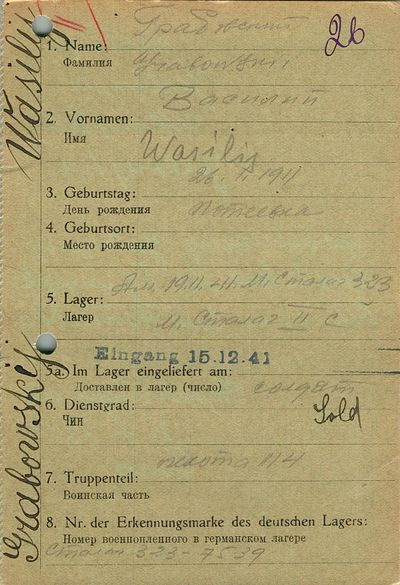 Wasily
Grabowsky
26
1. Name:
Фамилия
Grabowskii
Василий
2. Vornamen:
Имя
Wasilij
3. Geburtstag:
День рождения
4. Geburtsort:
Место рождения
5. Lager:
Лагер
М. Сталаг 323
М. Сталаг II C
Eingang 15.12.41
5a) Im Lager eingeliefert am:
Доставлен в лагер (число)
солдат
6. Dienstgrad:
Чин
Sold
7. Truppenteil:
Воинская часть
пехота
8. Nr. der Erkennungsmarke des deutschen Lagers:
Номер военнопленного в германском лагере
Сталаг 323-7539